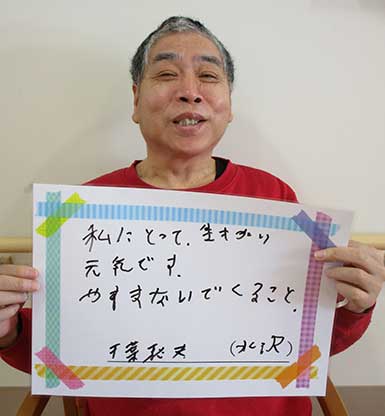 私にとって、生きがい
元気です。
やすまないでくること。
千葉秘夫 (水沢)